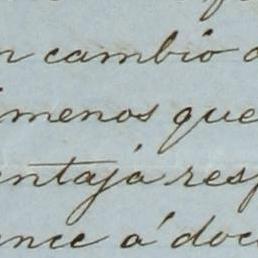 n cambio
menos que
entajá res
ance á doc